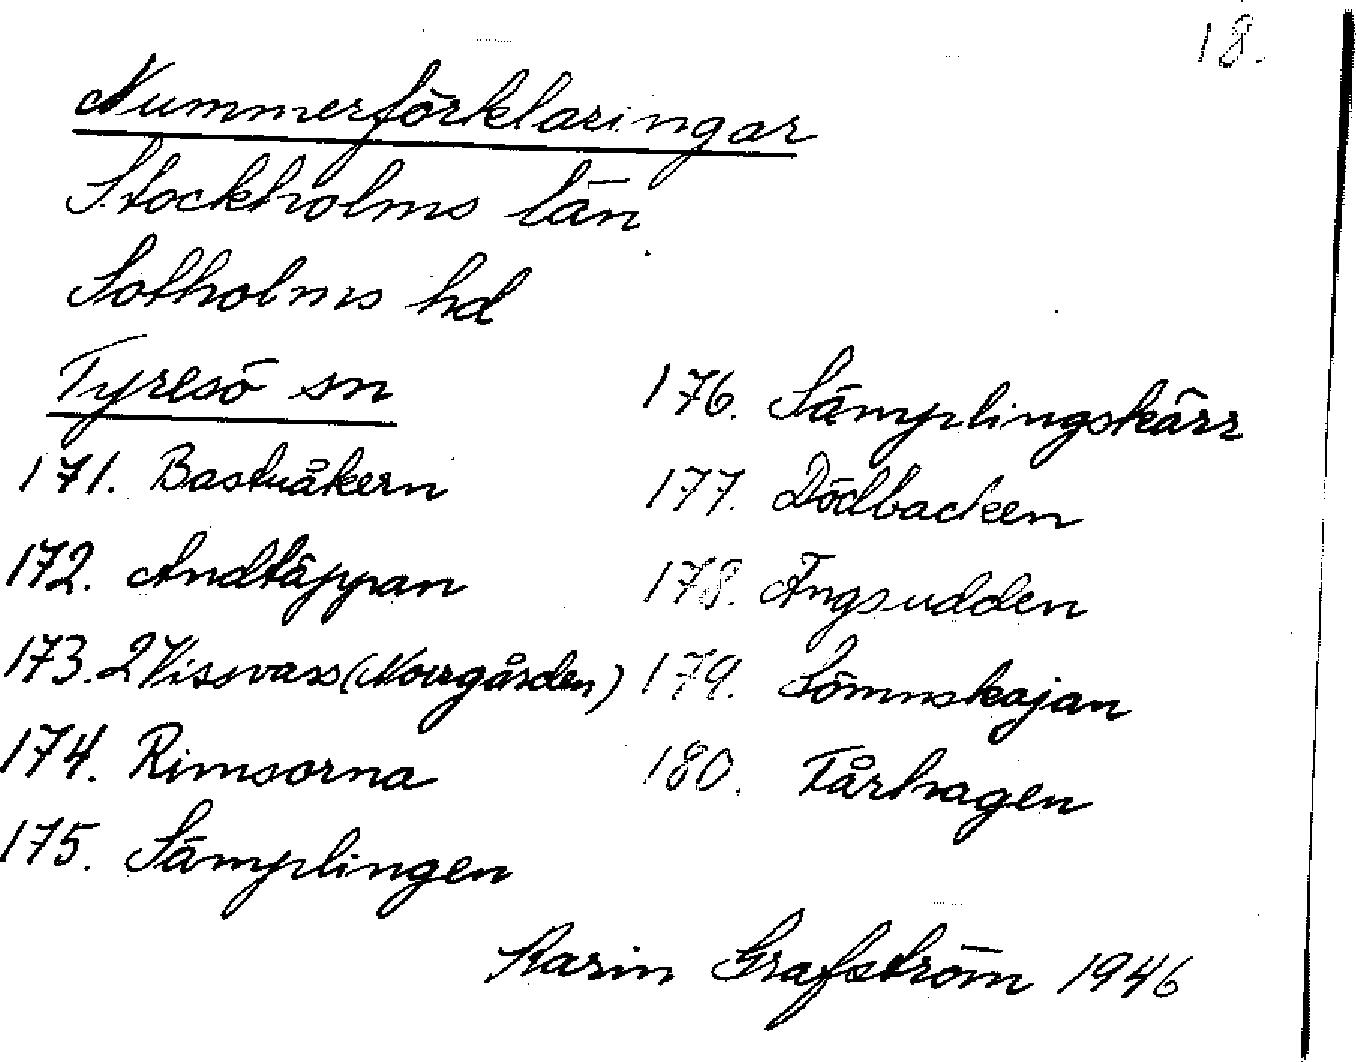 18.
Nummerförklaringar
Stockholms län
Sotholms hd
Tyresö sn
171. Bastuåkern
172. Andtäppan
173. 2 Vissvass (Norrgården)
174. Rimsorna
175. Sämplingen
176. Sämplingskärr
177. Dödbacken
178. Ängsudden
179. Sömnskajan
180. Fårhagen
Karin Grafström 1946